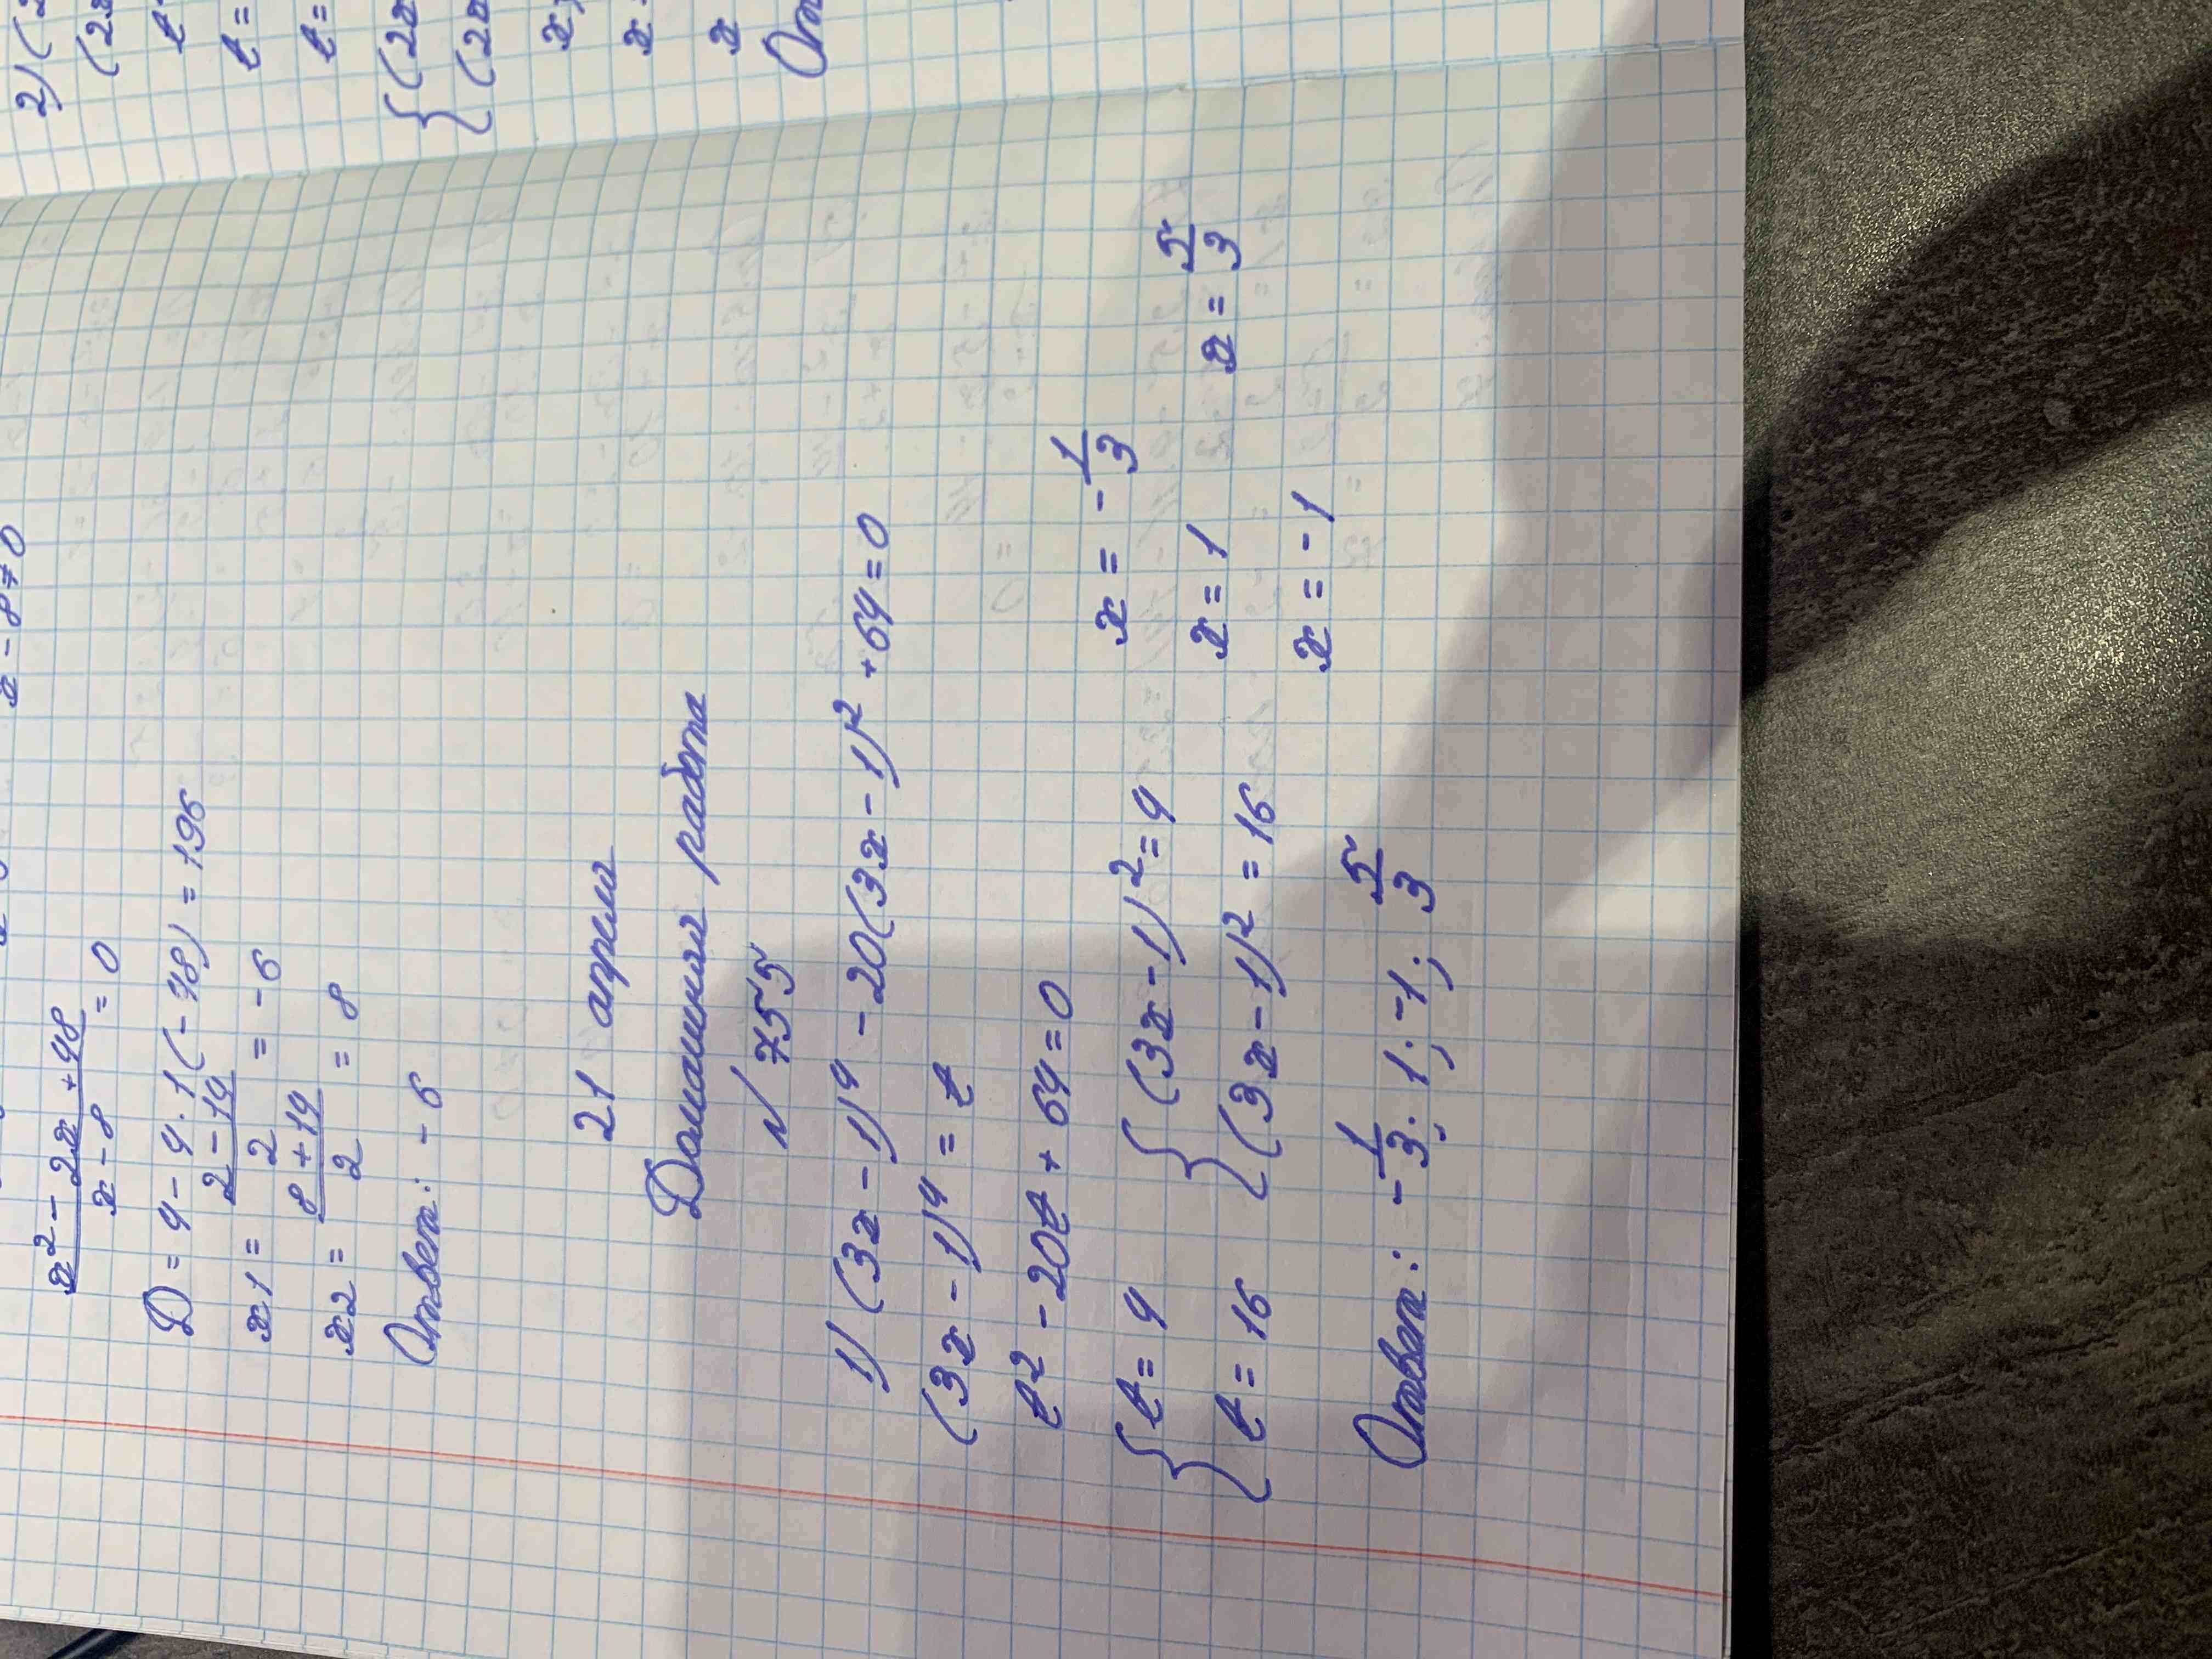 x - 8 ≠ 0
x² - 2x + 48 / x - 8 = 0
D = 4 - 4 · 1(-48) = 196
x1 = 2 - 14 / 2 = -6
x2 = 8 + 14 / 2 = 8
Ответ: -6
21 апреля
Домашняя работа
№ 755
1) (3x - 1)⁴ - 20(3x - 1)² + 64 = 0
(3x - 1)⁴ = t
t² - 20t + 64 = 0
{ t = 4 { (3x - 1)² = 4 x = -1/3
t = 16 (3x - 1)² = 16 x = 1 x = 5/3
x = -1
Ответ: -1/3; 1; -1; 5/3
2) (2
(2x
t
t =
t =
{ (2x
(2x
x
x
x
От